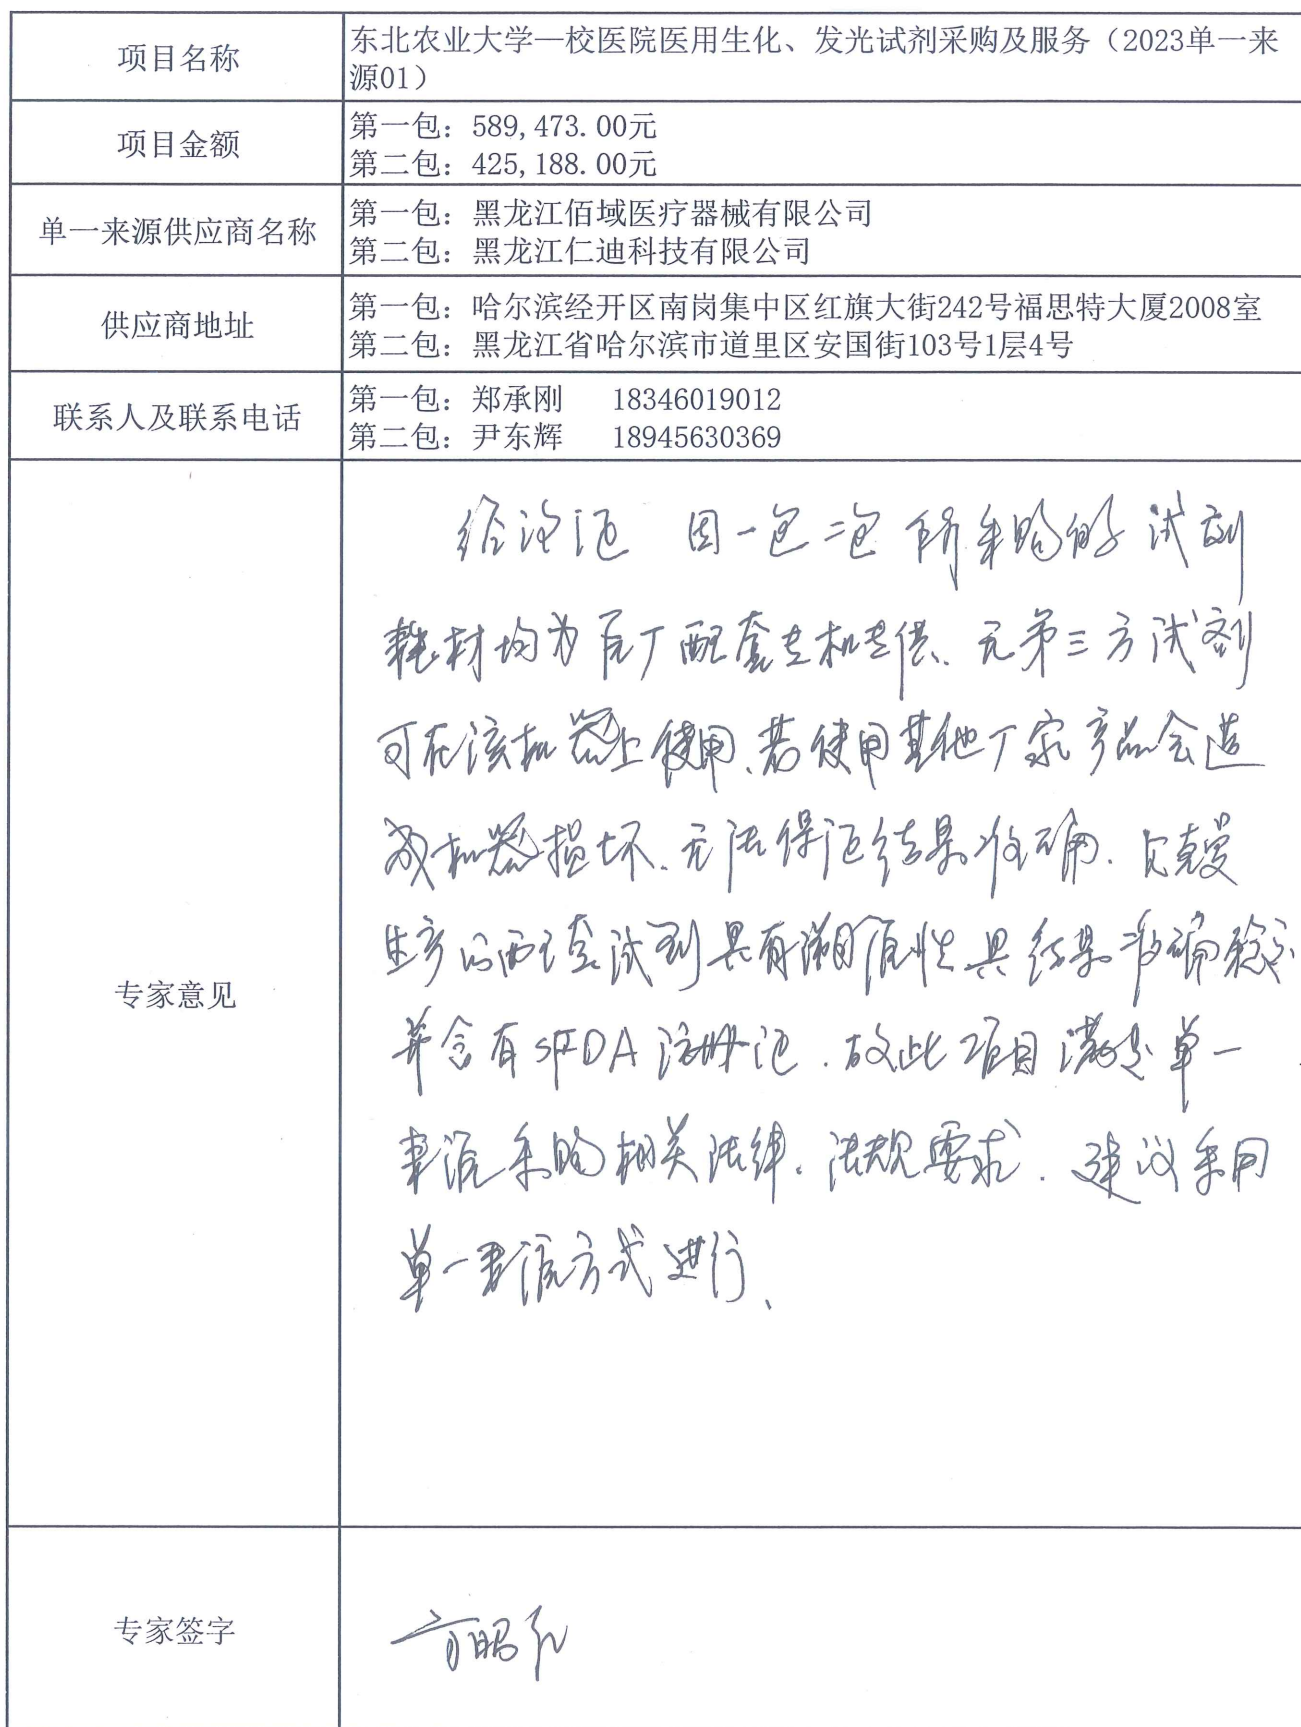 项目名称
东北农业大学—校医院医用生化、发光试剂采购及服务（2023单一来
源01）
项目金额
第一包：589,473.00元
第二包：425,188.00元
单一来源供应商名称
第一包：黑龙江佰域医疗器械有限公司
第二包：黑龙江仁迪科技有限公司
供应商地址
第一包：哈尔滨经开区南岗集中区红旗大街242号福思特大厦2008室
第二包：黑龙江省哈尔滨市道里区安国街103号1层4号
联系人及联系电话
第一包：郑承刚 18346019012
第二包：尹东辉 18945630369
专家意见
经论证 因一包二包所采购的试剂
耗材均为原厂配套专机专供、无第三方试剂
可在该机器上使用、若使用其他厂家产品会造
成机器损坏、无法保证结果准确、贝克曼
生产的配套试剂具有溯源性具结果准确稳定
并含有SFDA注册证、故此项目满足单一
来源采购相关法律、法规要求、建议采用
单一来源方式进行、
专家签字